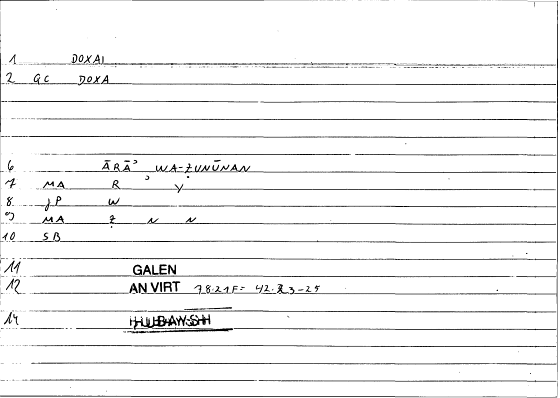 1 DOXAI
2 GC DOXA
6 ĀRĀʾ WA-ẒUNŪNAN
7 MA R ʾ Y
8 JP W
9 MA Ẓ N N
10 SB
11 GALEN
12 AN VIRT 78.21F= 42.23-25
14 HUBAYSH